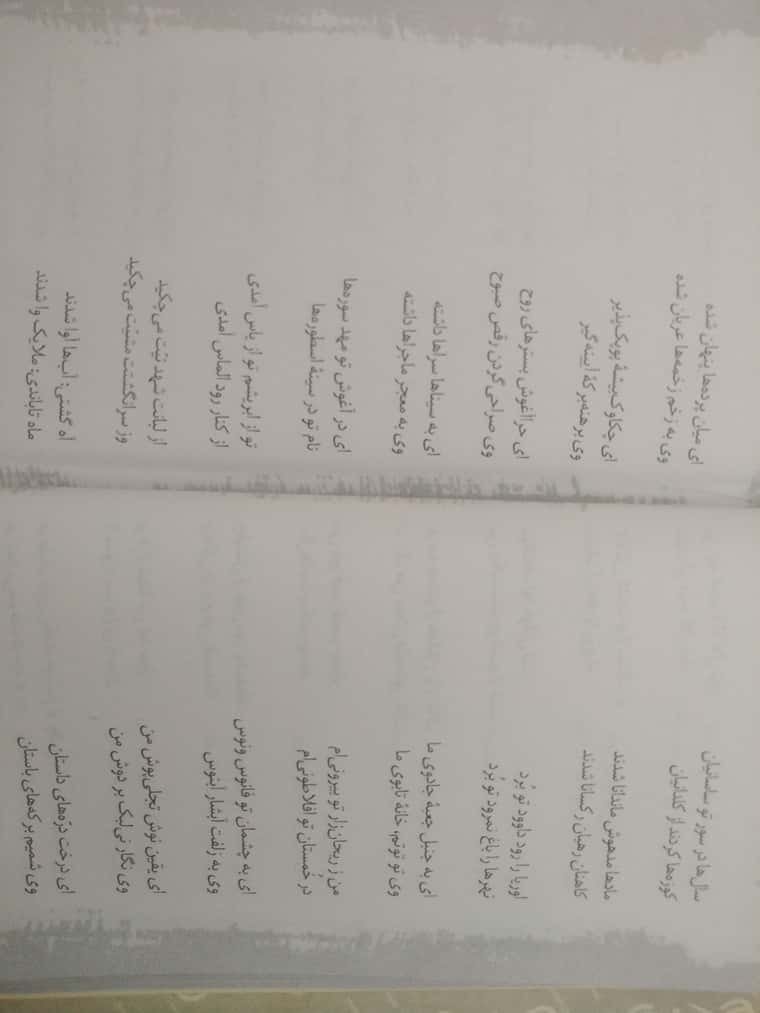 سال‌ها در سور تو ساسانیان
کوزه‌ها کردند از کلدانیان
مادها مدهوش ماندانا شدند
کاهنان رهبان رکسانا شدند
اوریا را رود داوود تو بُرد
نهرها را باغ نمرود تو بُرد
ای به جنبل جعبهٔ جادوی ما
وی تو توتم، خانهٔ تابوی ما
من ز ریحان‌زار تو بیرونی‌ام
در خُمستان تو افلاطونی‌ام
ای به چشمان تو فانوس ونوس
وی به زلفت آبشار آبنوس
ای یقین نوش تجلی‌پوش من
وی نگار نی‌لبک بر دوش من
ای درخت درّه‌های داستان
وی شمیم برکه‌های باستان
ای میان پرده‌ها پنهان شده
وی به زخم زخمه‌ها عریان شده
ای چکاوک‌بیشهٔ پوپک‌پذیر
وی برهنه‌برکهٔ آیینه‌گیر
ای حراآغوش بسترهای روح
وی صراحی‌گردن رقص صبوح
ای به سیناها سراها داشته
وی به معجر ماجراها داشته
ای در آغوش تو مهد سوره‌ها
نام تو در سینهٔ اسطوره‌ها
تو از ابریشم تو از یاس آمدی
از کنار رود الماس آمدی
از لبانت شهد نیّت می‌چکید
وز سرانگشتت مشیّت می‌چکید
آه گشتی: آب‌ها آوا شدند
ماه تاباندی: ملایک وا شدند